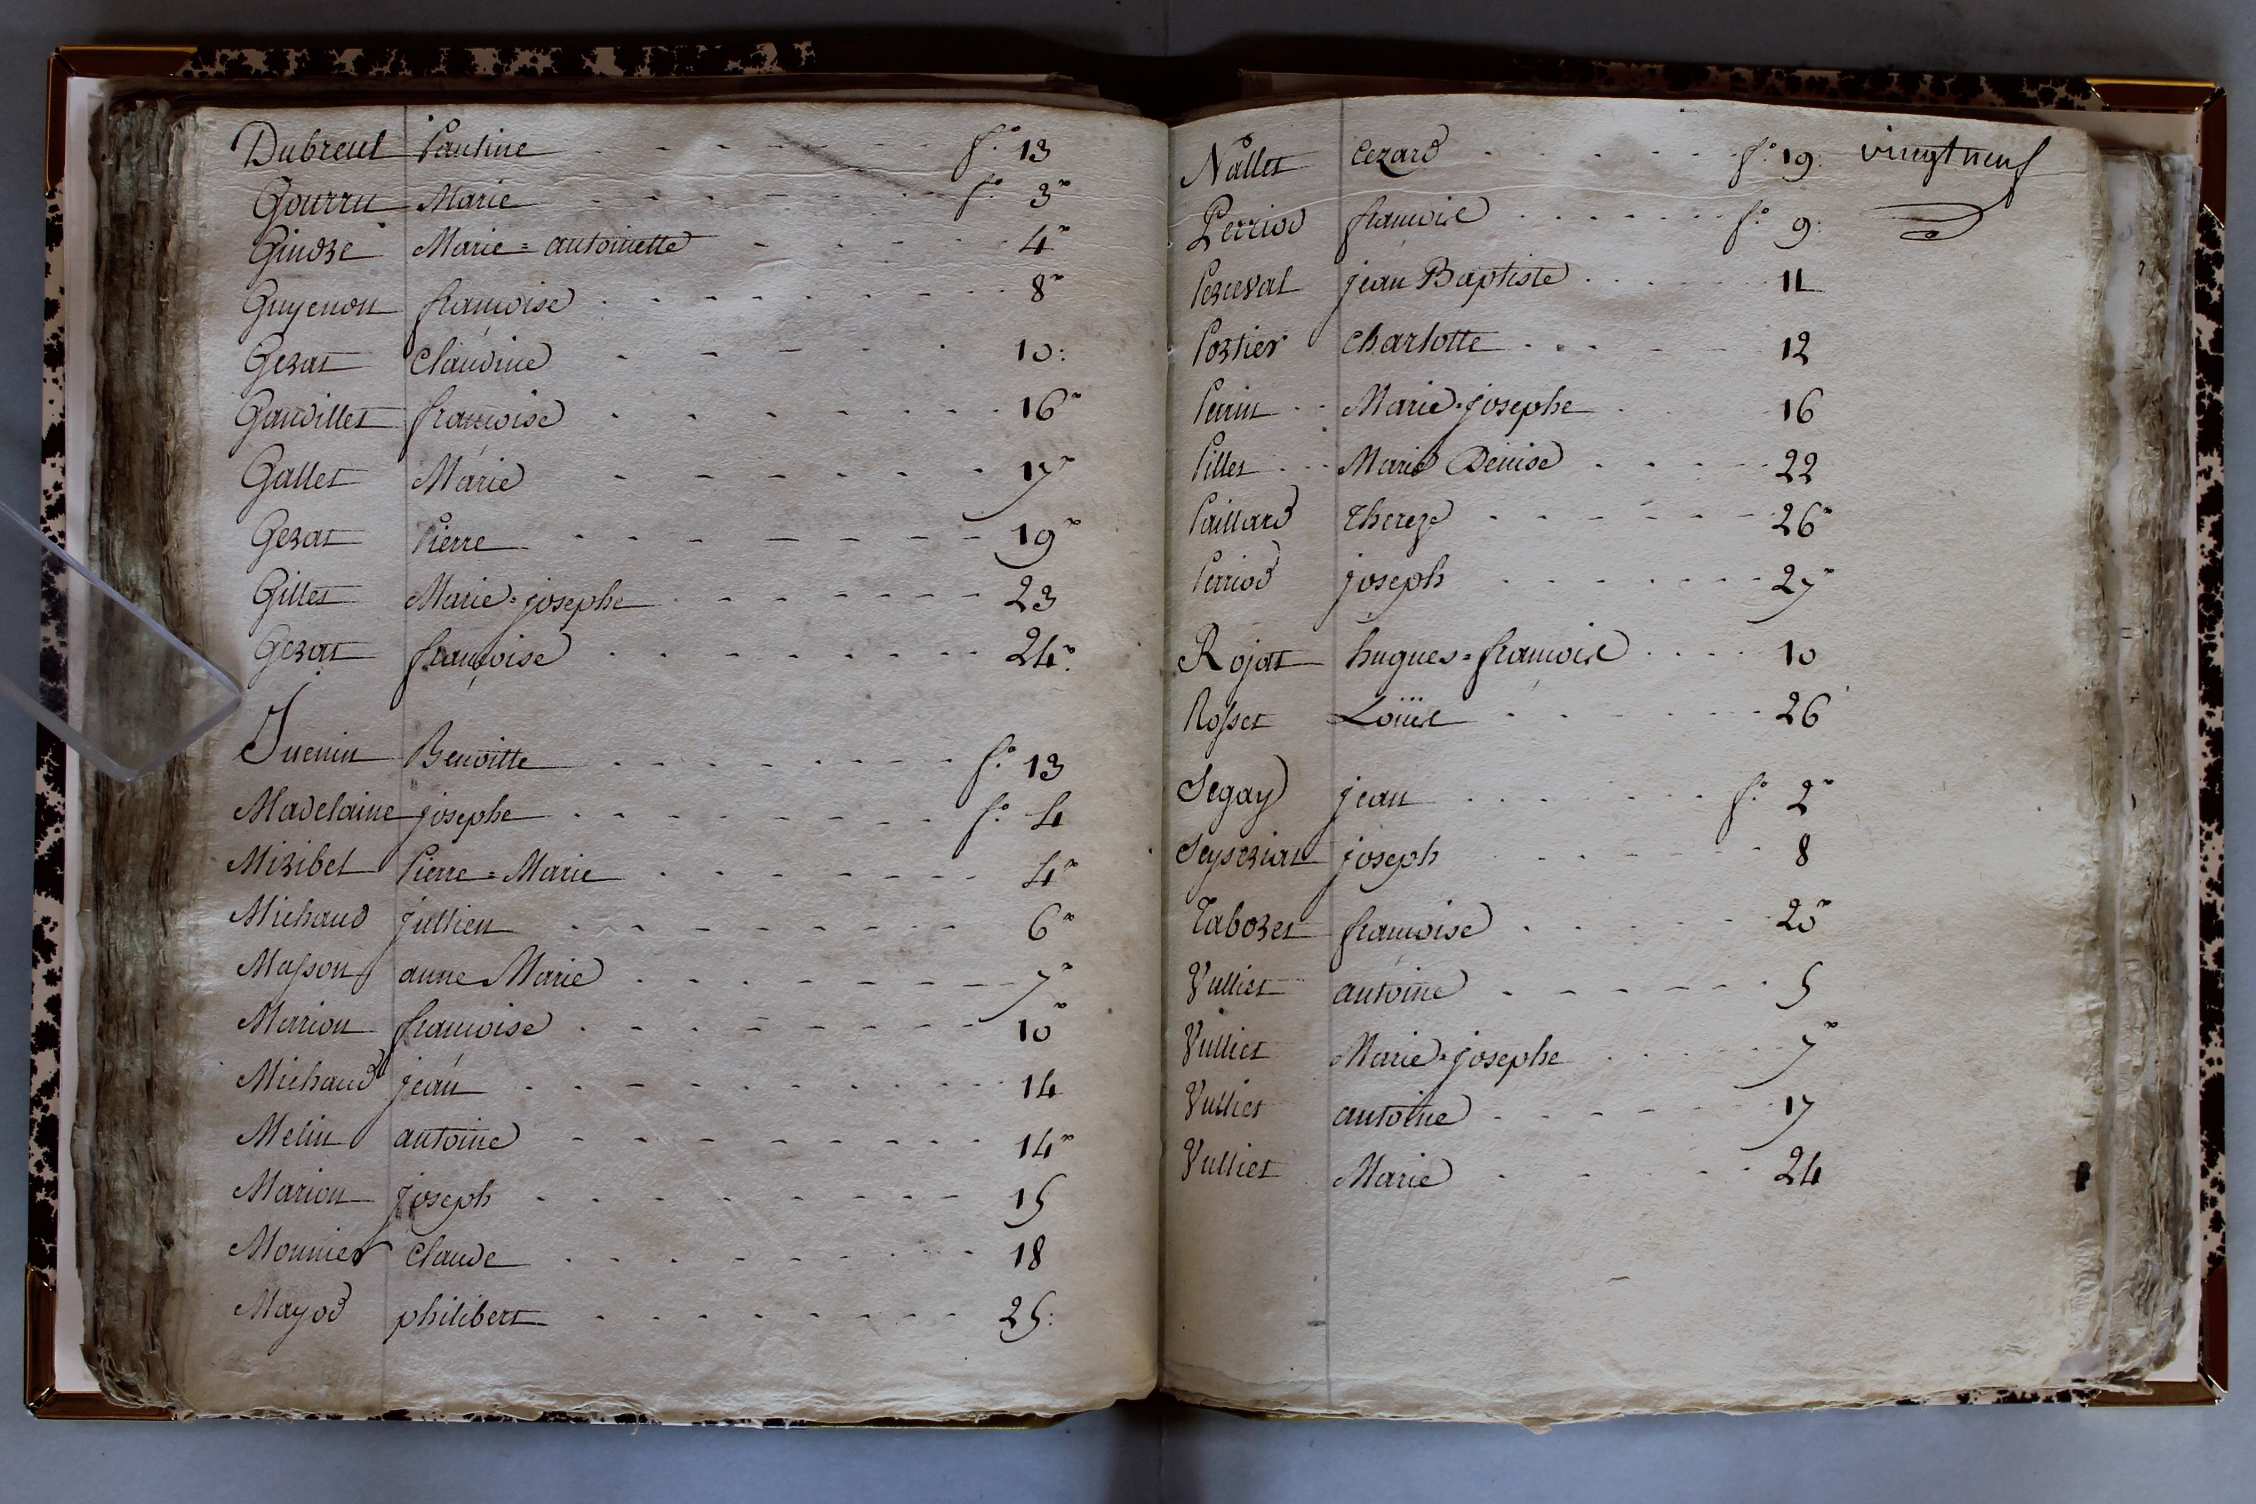 Dubreul Pauline f.o 13
Gourru Marie f.o 3.o
Gindre Marie=antoinette 4.o
Guyenon françoise 8.o
Gerat Claudine 10:
Gaudillet françoise 16.o
Gallet Marie 17.o
Gerat Pierre 19.o
Gillet Marie=josephe 23
Gerat françoise 24.o
Juenin Benoitte f.o 13
Madelaine josephe f.o 4
Miribel Pierre=Marie 4.o
Michaud jullien 6.o
Masson anne Marie 7.o
Marion françoise 10.o
Michaud jean 14
Melin antoine 14.o
Marion joseph 15
Monnier Claude 18
Mayod philibert 25:
Nallet Cezard f.o 19: vingt neuf
Perriod françois f.o 9:
Perceval jean Baptiste 11
Portier Charlotte 12
Perrin Marie=josephe 16
Pillet Marie Denise 22
Paillard Thereze 26.o
Perriod joseph 27.o
Rojat hugues=françois 10
Rosset Loüis 26
Segay jean f.o 2.o
Seyseriat joseph 8
Taboret françoise 20.o
Vulliet antoine 5
Vulliet Marie=josephe 7.o
Vulliet antoine 17
Vulliet Marie 24